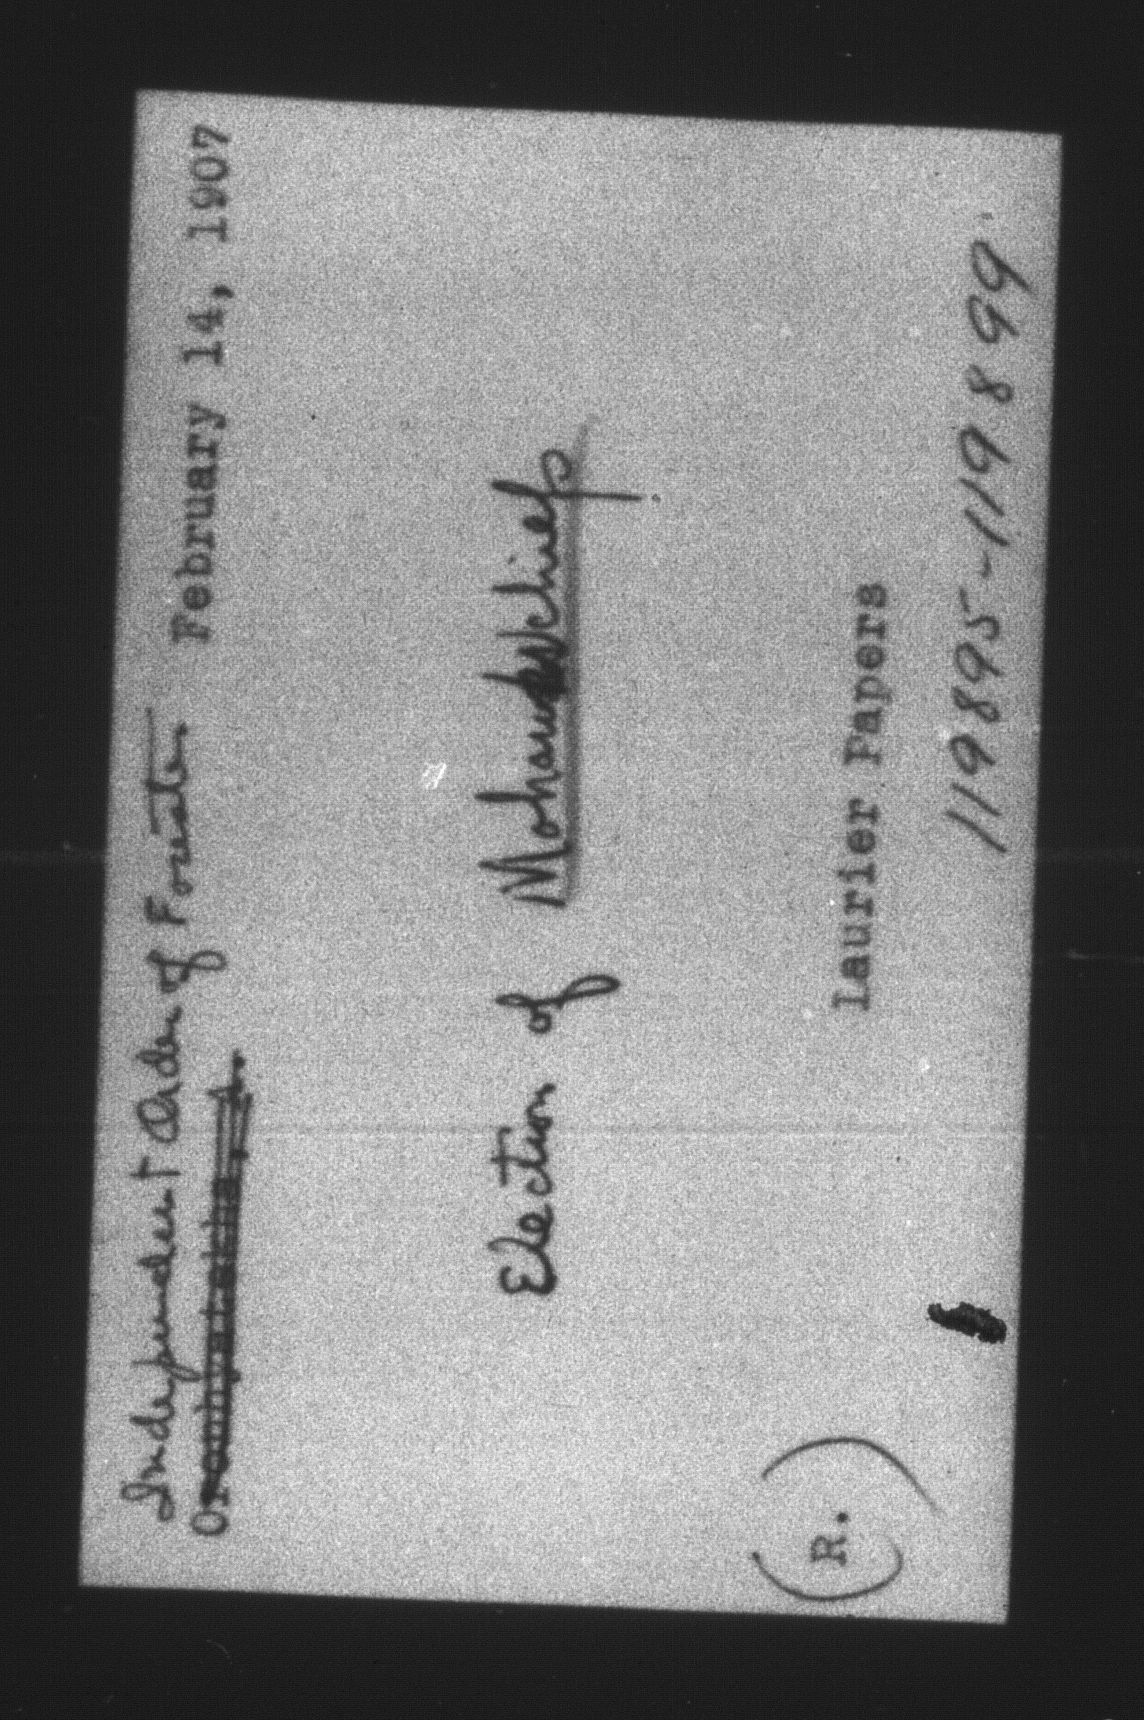 Independent Order of Foresters
February 14, 1907
Oronhyatekha,
Election of Mohawk chief.
(R.)
Laurier Papers
119895-119899